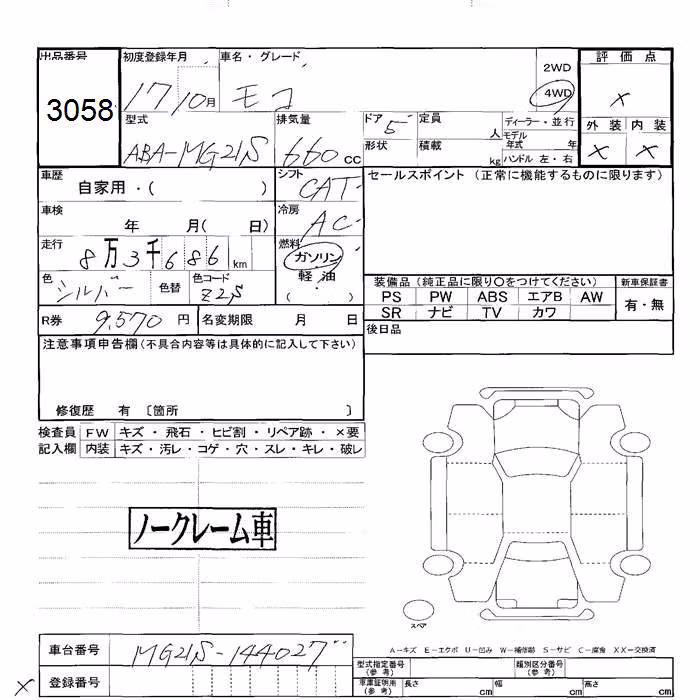 出品番号 初度登録年月 車名・グレード 2WD 評価点
3058 17 10月 モコ 4WD ×
型式 排気量 ドア 5 定員 人 ディーラー・並行 外装 内装
ABA-MG21S 660 cc 形状 積載 kg モデル年式 年 × ×
ハンドル 左・右
車歴 自家用・( ) シフト CAT セールスポイント (正常に機能するものに限ります)
車検 年 月( 日) 冷房 AC
走行 8万3千686 km 燃料 ガソリン
軽油
色 シルバー 色替 色コード Z2S ( ) 装備品 (純正品に限り○をつけてください) 新車保証書
PS PW ABS エアB AW 有・無
R券 9,570 円 名変期限 月 日 SR ナビ TV カワ
後日品
注意事項申告欄(不具合内容等は具体的に記入して下さい)
修復歴 有 〔箇所 〕
検査員 FW キズ・飛石・ヒビ割・リペア跡・×要
記入欄 内装 キズ・汚レ・コゲ・穴・スレ・キレ・破レ
ノークレーム車
スペア
A−キズ E−エクボ U−凹み W−補修跡 S−サビ C−腐食 XX−交換済
車台番号 MG21S-144027 型式指定番号(参考) 類別区分番号(参考)
× 登録番号 車庫証明用(参考) 長さ cm 幅 cm 高さ cm